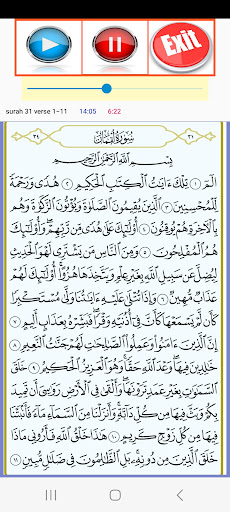 Exit
surah 31 verse 1-11 14:05 6:22
٣١ سُورَةُ لُقْمَانَ ٣٤
بِسْمِ ٱللَّهِ ٱلرَّحْمَٰنِ ٱلرَّحِيمِ
الٓمٓ ١ تِلْكَ ءَايَٰتُ ٱلْكِتَٰبِ ٱلْحَكِيمِ ٢ هُدًى وَرَحْمَةً
لِّلْمُحْسِنِينَ ٣ ٱلَّذِينَ يُقِيمُونَ ٱلصَّلَوٰةَ وَيُؤْتُونَ ٱلزَّكَوٰةَ وَهُم
بِٱلْءَاخِرَةِ هُمْ يُوقِنُونَ ٤ أُو۟لَٰٓئِكَ عَلَىٰ هُدًى مِّن رَّبِّهِمْ ۖ وَأُو۟لَٰٓئِكَ
هُمُ ٱلْمُفْلِحُونَ ٥ وَمِنَ ٱلنَّاسِ مَن يَشْتَرِى لَهْوَ ٱلْحَدِيثِ
لِيُضِلَّ عَن سَبِيلِ ٱللَّهِ بِغَيْرِ عِلْمٍ وَيَتَّخِذَهَا هُزُوًا ۚ أُو۟لَٰٓئِكَ لَهُمْ
عَذَابٌ مُّهِينٌ ٦ وَإِذَا تُتْلَىٰ عَلَيْهِ ءَايَٰتُنَا وَلَّىٰ مُسْتَكْبِرًا
كَأَن لَّمْ يَسْمَعْهَا كَأَنَّ فِىٓ أُذُنَيْهِ وَقْرًا ۖ فَبَشِّرْهُ بِعَذَابٍ أَلِيمٍ ٧
إِنَّ ٱلَّذِينَ ءَامَنُوا۟ وَعَمِلُوا۟ ٱلصَّٰلِحَٰتِ لَهُمْ جَنَّٰتُ ٱلنَّعِيمِ ٨
خَٰلِدِينَ فِيهَا ۖ وَعْدَ ٱللَّهِ حَقًّا ۚ وَهُوَ ٱلْعَزِيزُ ٱلْحَكِيمُ ٩ خَلَقَ
ٱلسَّمَٰوَٰتِ بِغَيْرِ عَمَدٍ تَرَوْنَهَا ۖ وَأَلْقَىٰ فِى ٱلْأَرْضِ رَوَٰسِىَ أَن تَمِيدَ
بِكُمْ وَبَثَّ فِيهَا مِن كُلِّ دَآبَّةٍ ۚ وَأَنزَلْنَا مِنَ ٱلسَّمَآءِ مَآءً فَأَنۢبَتْنَا
فِيهَا مِن كُلِّ زَوْجٍ كَرِيمٍ ١٠ هَٰذَا خَلْقُ ٱللَّهِ فَأَرُونِى مَاذَا
خَلَقَ ٱلَّذِينَ مِن دُونِهِۦ ۚ بَلِ ٱلظَّٰلِمُونَ فِى ضَلَٰلٍ مُّبِينٍ ١١